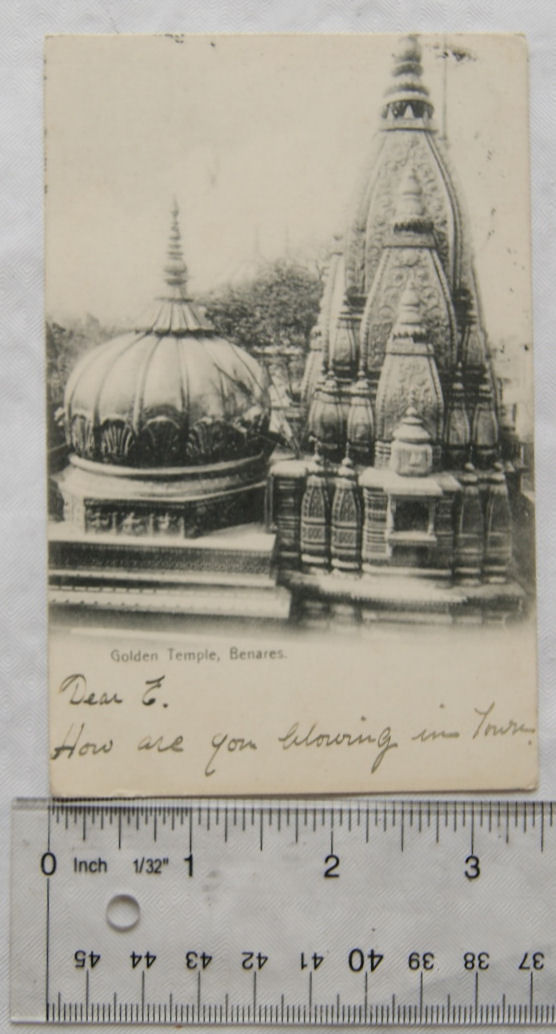 Golden Temple, Benares.
Dear E.
How are you blowing in Town.
0 Inch 1/32" 1 2 3
45 44 43 42 41 40 39 38 37